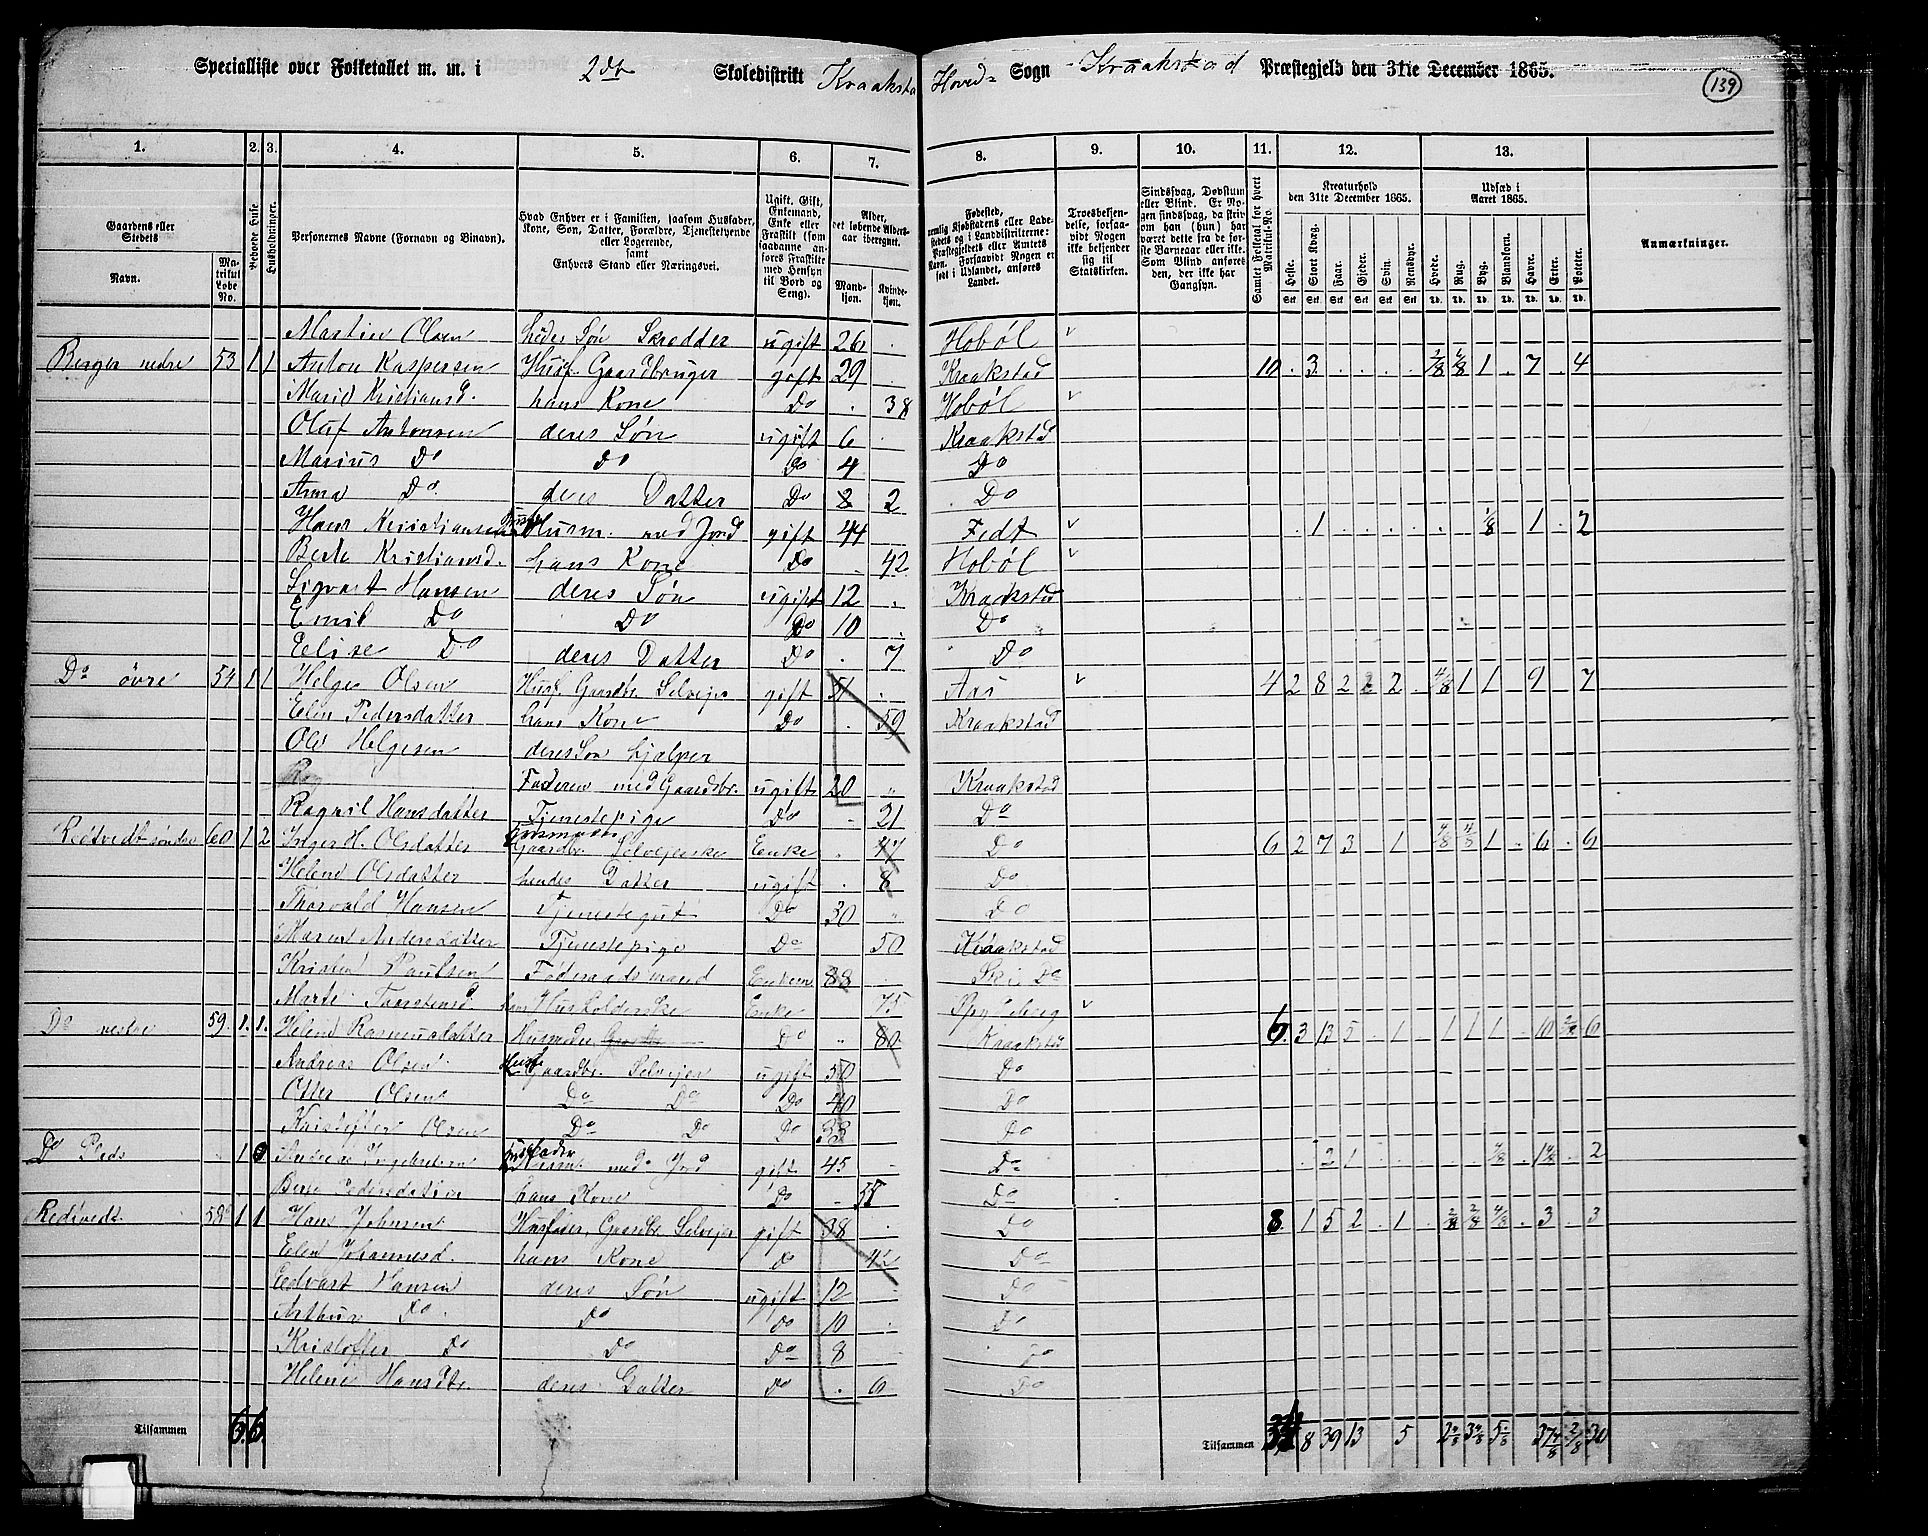 Specialliste over Folketallet m. m. i 2det Skoledistrikt Kraaksta Hoved= Sogn Kraakstad Præstegjeld den 31te December 1865.
139
1. 2. 3. 4. 5. 6. 7. 8. 9. 10. 11. 12. 13.
Gaardens eller Stedets
Navn.
Matrikul Løbe No.
Beboede Huse.
Husholdninger.
Personernes Navne (Fornavn og Binavn).
Hvad Enhver er i Familien, saasom Husfader, Kone, Søn, Datter, Forældre, Tjenestetyende eller Logerende, samt Enhvers Stand eller Næringsvei.
Ugift, Gift, Enkemand, Enke eller Fraskilt (som saadanne anføres Fraskilte med Hensyn til Bord og Seng).
Alder, det løbende Aldersaar iberegnet.
Mandkjøn. Kvindekjøn.
Fødested, nemlig Kjøbstadens eller Ladestedets og i Landdistrikterne: Præstegjeldets eller Amtets Navn. Forsaavidt Nogen er født i Udlandet, anføres Landet.
Troesbekjendelse, forsaavidt Nogen ikke bekjender sig til Statskirken.
Sindssvag, Døvstum eller Blind. Er Nogen sindssvag, da skrives om han (hun) har været dette fra de første Barneaar eller ikke. Som Blind anføres den, der ikke har Gangsyn.
Samlet Folketal for hvert Matrikul-No.
Kreaturhold den 31te December 1865.
Heste. Stort Kvæg. Faar. Gjeder. Svin. Rensdyr.
Udsæd i Aaret 1865.
Hvede. Rug. Byg. Blandkorn. Havre. Erter. Poteter.
Anmærkninger.
Martin Olsen Søn Skrædder ugift 26 Hobøl
Berger nedre 53 1 1 Anton Kaspersen Husf. Gaardbruger gift 29 Kraakstad 10 3 2/8 4/8 1 7 4
Marie Kristiansd. hans Kone Do 38 Hobøl
Oluf Antonsen deres Søn ugift 6 Kraakstad
Marius Do Do Do 4 Do
Anna Do deres Datter Do 2 Do
Hans Kristiansen Husm. med Jord gift 44 1 1/8 1 2
Berte Kristiansd. hans Kone Do 42 Hobøl
Sigvart Hansen deres Søn ugift 12 Kraakstad
Emil Do Do Do 10 Do
Elise Do deres Datter Do 7 Do
Do øvre 54 1 1 Helge Olsen Husf. Gaardbr. Selvejer gift 51 Aas 4 2 8 2 2 4/8 1 1 9 7
Elen Pedersdatter hans Kone Do 59 Kraakstad
Ole Helgesen deres Søn hjælper
Faderen med Gaardsbr. ugift 20 Kraakstad
Ragnil Hansdatter Tjenestepige Do 21 Do
Rødtvedt søndre 60 1 2 Inger H. Olsdatter Gaardbr. Selvejerske Enke 47 Do 6 2 7 3 1 4/8 4/8 1 6 6
Helene Olsdatter hendes Datter ugift 8 Do
Thorvald Hansen Tjenestegut Do 30 Do
Maren Andersdatter Tjenestepige Do 50 Kraakstad
Kristen Paulsen Føderaadsmand Enkem 88 Ski Do
Marte Taarstensd. Husholderske Enke 75 Spydeberg
Do vestre 59 1 1 Helene Rasmusdatter Husmoder Do 80 Kraakstad 6 3 13 5 1 1 1 1 10 2/8 6
Andreas Olsen Gaardbr. Selvejer ugift 50 Do
Otter Olsen Do Do Do 40 Do
Kristoffer Olsen Do Do Do 33 Do
Do Plads 1 Andreas Husfader Husm. med Jord gift 45 Do 2 1 2
Berte Pedersdatter hans Kone Do 58 Do
Rødtvedt 58 1 1 Hans Johnsen Husfader, Gaardbr. Selvejer gift 38 Do 8 1 5 2 1 2/8 2/8 4/8 3 3
Elen Johannesd. hans Kone Do 42 Do
Edvart Hansen deres Søn ugift 12 Do
Arthur Do Do Do 10 Do
Kristoffer Do Do Do 8 Do
Helene Hansdtr. deres Datter Do 6 Do
Tilsammen 6 6
Tilsammen 34 8 39 13 5